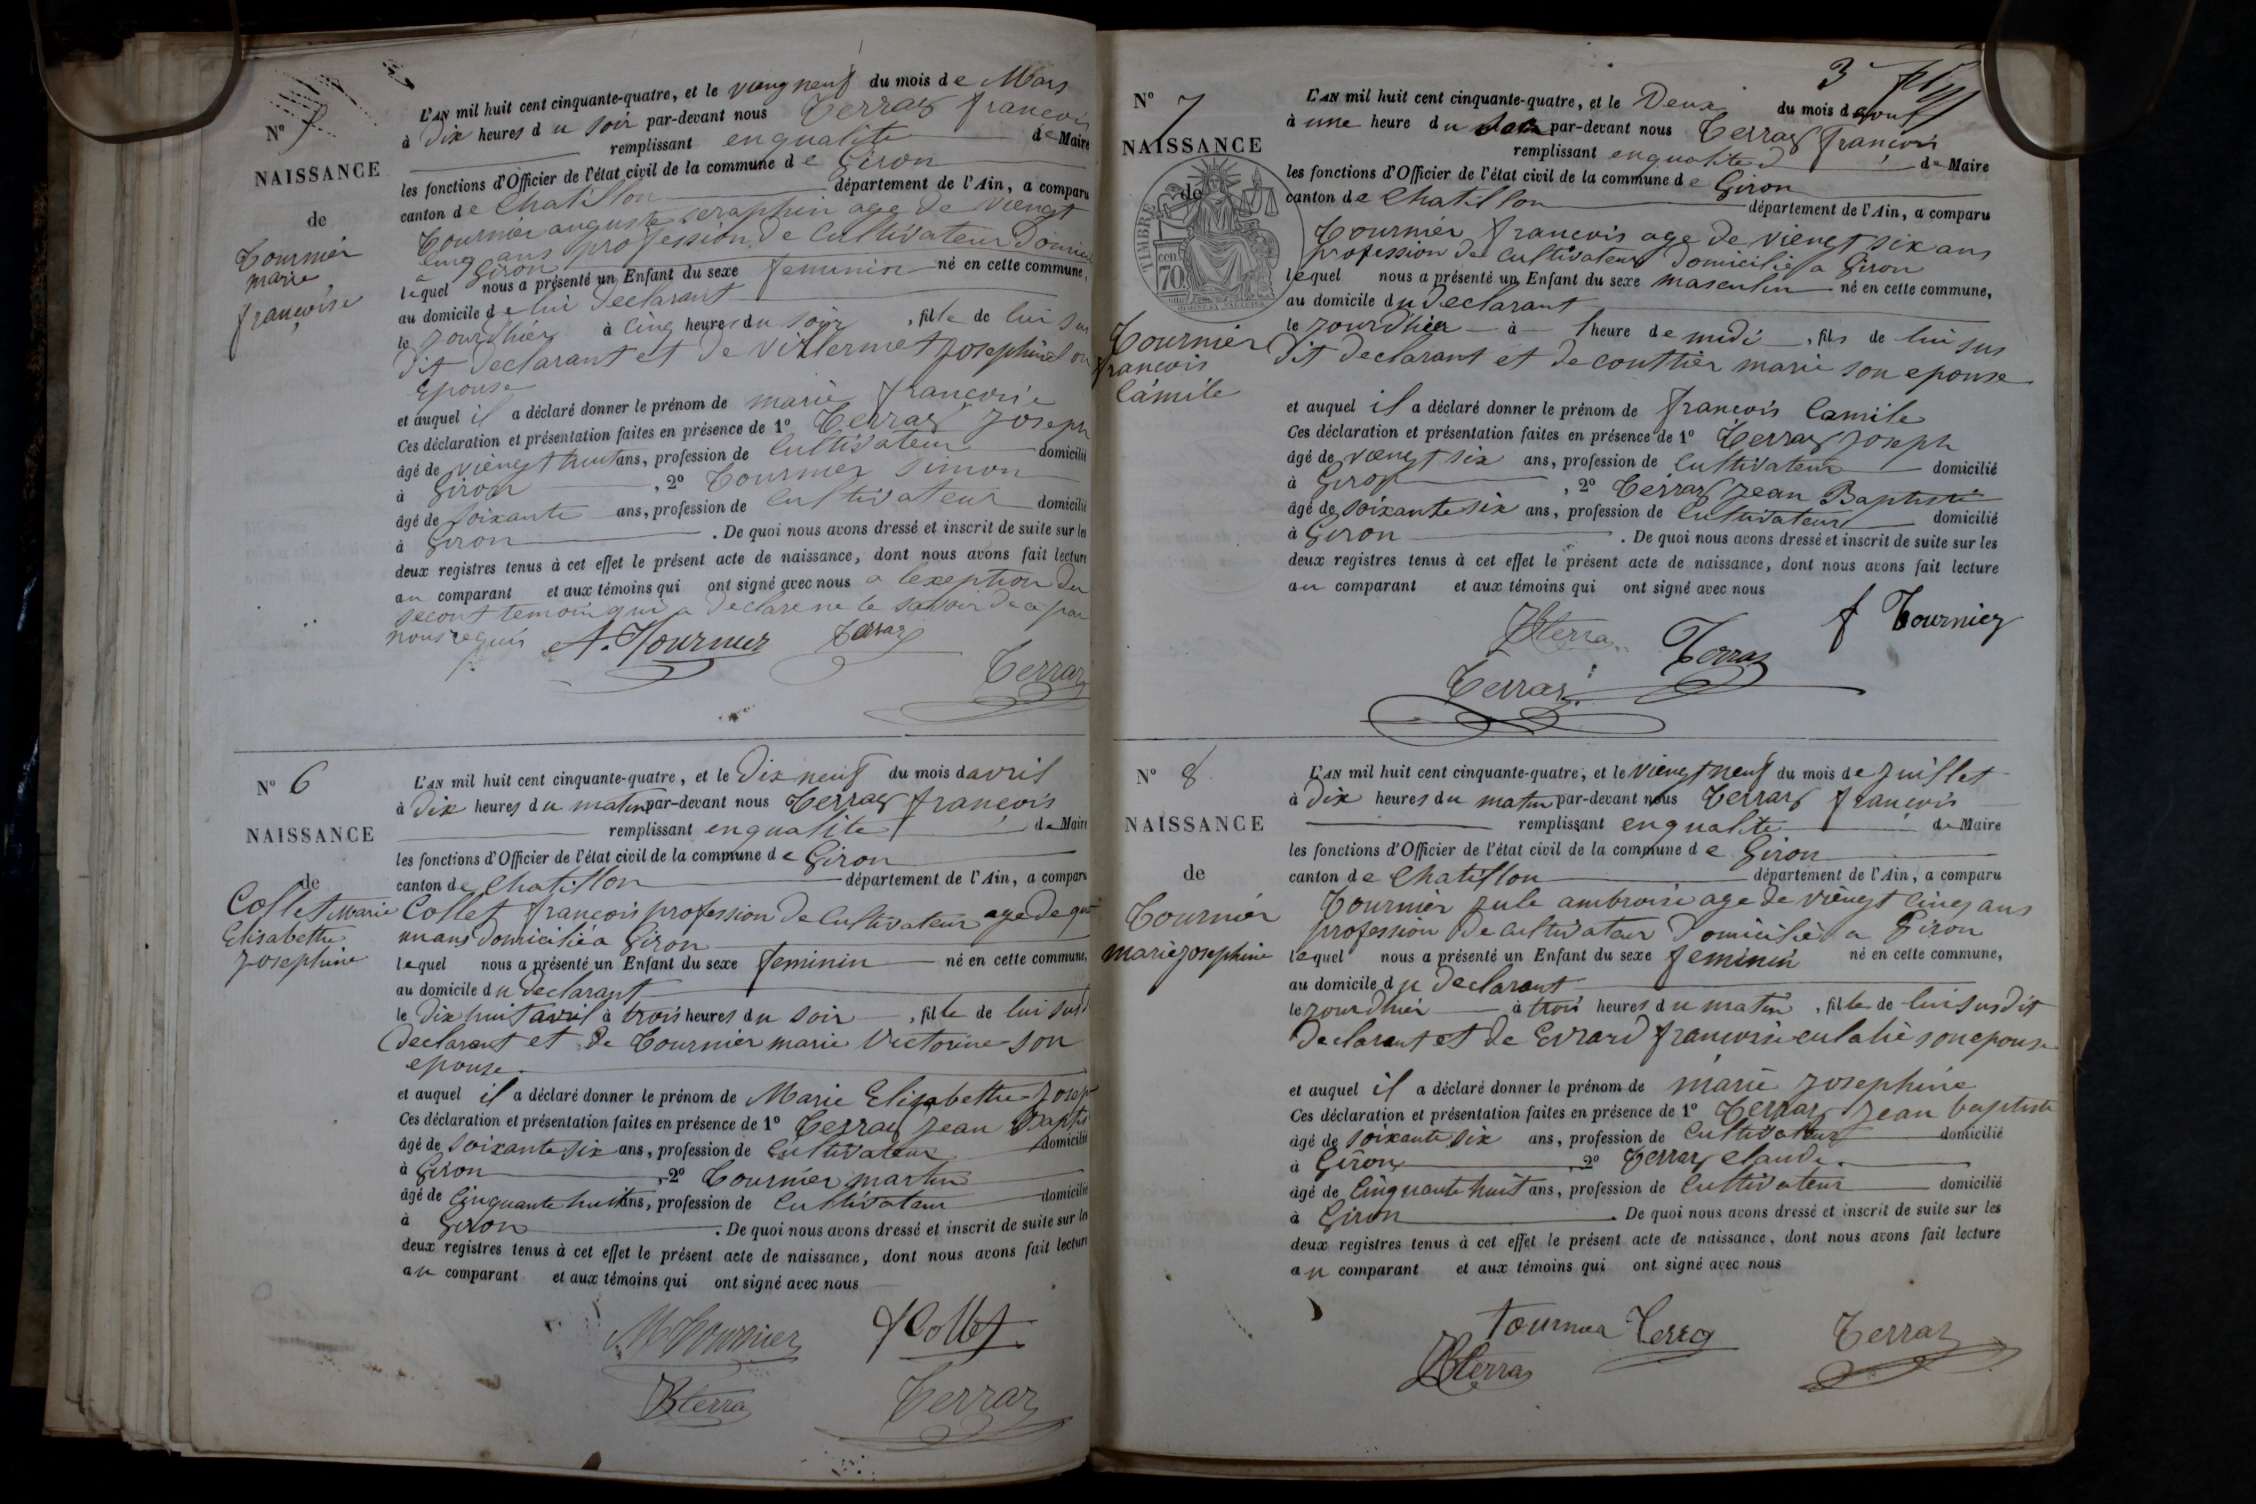 N° 5
NAISSANCE
de
Tournier
marie
françoise
L'AN mil huit cent cinquante-quatre, et le viengneuf du mois de Mars
à Dix heures du soir par-devant nous Terraz françois
remplissant enqualite de Maire
les fonctions d'Officier de l'état civil de la commune de Giron
canton de Chatillon département de l'Ain, a comparu
Tournier auguste seraphin age de viengt
cinq ans profession de Cultivateur Domicilié
a Giron
lequel nous a présenté un Enfant du sexe feminin né en cette commune,
au domicile de lui declarant
le jourdhier à Cinq heures du soir, fille de lui sus
dit declarant et de Villermet josephine son
epouse
et auquel il a déclaré donner le prénom de marie françoise
Ces déclaration et présentation faites en présence de 1° Terraz joseph
âgé de viengt huit ans, profession de Cultivateur domicilié
à Giron, 2° Tournier Simon
âgé de soixante ans, profession de Cultivateur domicilié
à Giron. De quoi nous avons dressé et inscrit de suite sur les
deux registres tenus à cet effet le présent acte de naissance, dont nous avons fait lecture
au comparant et aux témoins qui ont signé avec nous a lexeption du
secont temoin qui a declare ne le savoir de ce par
nous requis A. Tournier Terraz
Terraz
N° 6
NAISSANCE
de
Collet Marie
Elisabethe
josephine
L'AN mil huit cent cinquante-quatre, et le Dix neuf du mois davril
à Dix heures du matin par-devant nous Terraz françois
remplissant enqualite de Maire
les fonctions d'Officier de l'état civil de la commune de Giron
canton de Chatillon département de l'Ain, a comparu
Collet françois profession de Cultivateur age de
un ans domicilié a Giron
lequel nous a présenté un Enfant du sexe feminin né en cette commune,
au domicile du declarant
le Dix huit avril à trois heures du soir, fille de lui susd
declarant et de Tournier marie Victorine son
epouse.
et auquel il a déclaré donner le prénom de Marie Elisabethe Josep
Ces déclaration et présentation faites en présence de 1° Terraz jean Baptis
âgé de soixante six ans, profession de Cultivateur domicilié
à Giron, 2° Tournier martin
âgé de Cinquante huit ans, profession de Cultivateur domicilié
à Giron. De quoi nous avons dressé et inscrit de suite sur les
deux registres tenus à cet effet le présent acte de naissance, dont nous avons fait lecture
au comparant et aux témoins qui ont signé avec nous
M Tournier f Collet
JBterraz Terraz
3
N° 7
NAISSANCE
de
TIMBRE
70
Tournier
françois
Camile
L'AN mil huit cent cinquante-quatre, et le Deux du mois daout
à une heure du soir par-devant nous Terraz françois
remplissant enqualite de Maire
les fonctions d'Officier de l'état civil de la commune de Giron
canton de Chatillon département de l'Ain, a comparu
Tournier françois age de viengt six ans
profession de Cultivateur domicilié a Giron
lequel nous a présenté un Enfant du sexe masculin né en cette commune,
au domicile du declarant
le jourdhier à 1 heure de midi, fils de lui sus
dit declarant et de couttier marie son epouse
et auquel il a déclaré donner le prénom de françois Camile
Ces déclaration et présentation faites en présence de 1° Terraz joseph
âgé de viengt six ans, profession de Cultivateur domicilié
à Giron, 2° Terraz jean Baptiste
âgé de soixante six ans, profession de Cultivateur domicilié
à Giron. De quoi nous avons dressé et inscrit de suite sur les
deux registres tenus à cet effet le présent acte de naissance, dont nous avons fait lecture
au comparant et aux témoins qui ont signé avec nous
JBterra Terraz f Tournier
Terraz
N° 8
NAISSANCE
de
Tournier
marie josephine
L'AN mil huit cent cinquante-quatre, et le viengtneuf du mois de juillet
à Dix heures du matin par-devant nous Terraz françois
remplissant enqualite de Maire
les fonctions d'Officier de l'état civil de la commune de Giron
canton de Chatillon département de l'Ain, a comparu
Tournier jule ambroise age de viengt cinq ans
profession de cultivateur domicilié a Giron
lequel nous a présenté un Enfant du sexe feminin né en cette commune,
au domicile du declarant
le jourdhier à trois heures du matin, fille de lui susdit
declarant et de Evrard francoise eulalie son epouse
et auquel il a déclaré donner le prénom de marie josephine
Ces déclaration et présentation faites en présence de 1° Terraz jean baptiste
âgé de soixante six ans, profession de Cultivateur domicilié
à Giron, 2° Terraz Claude.
âgé de Cinquante huit ans, profession de Cultivateur domicilié
à Giron. De quoi nous avons dressé et inscrit de suite sur les
deux registres tenus à cet effet le présent acte de naissance, dont nous avons fait lecture
au comparant et aux témoins qui ont signé avec nous
Tournier Terraz Terraz
JBterraz